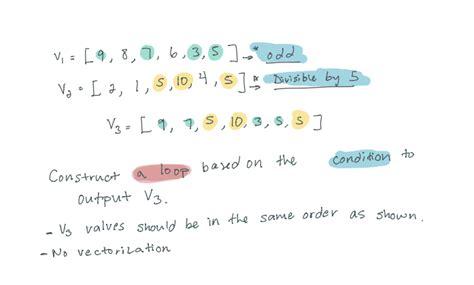 V1 = [ 9, 8, 7, 6, 3, 5 ] → * odd
V2 = [ 2, 1, 5, 10, 4, 5 ] → * Divisible by 5
V3 = [ 9, 7, 5, 10, 3, 5, 5 ]
Construct a loop based on the condition to
output V3.
- V3 values should be in the same order as shown.
- No vectorization